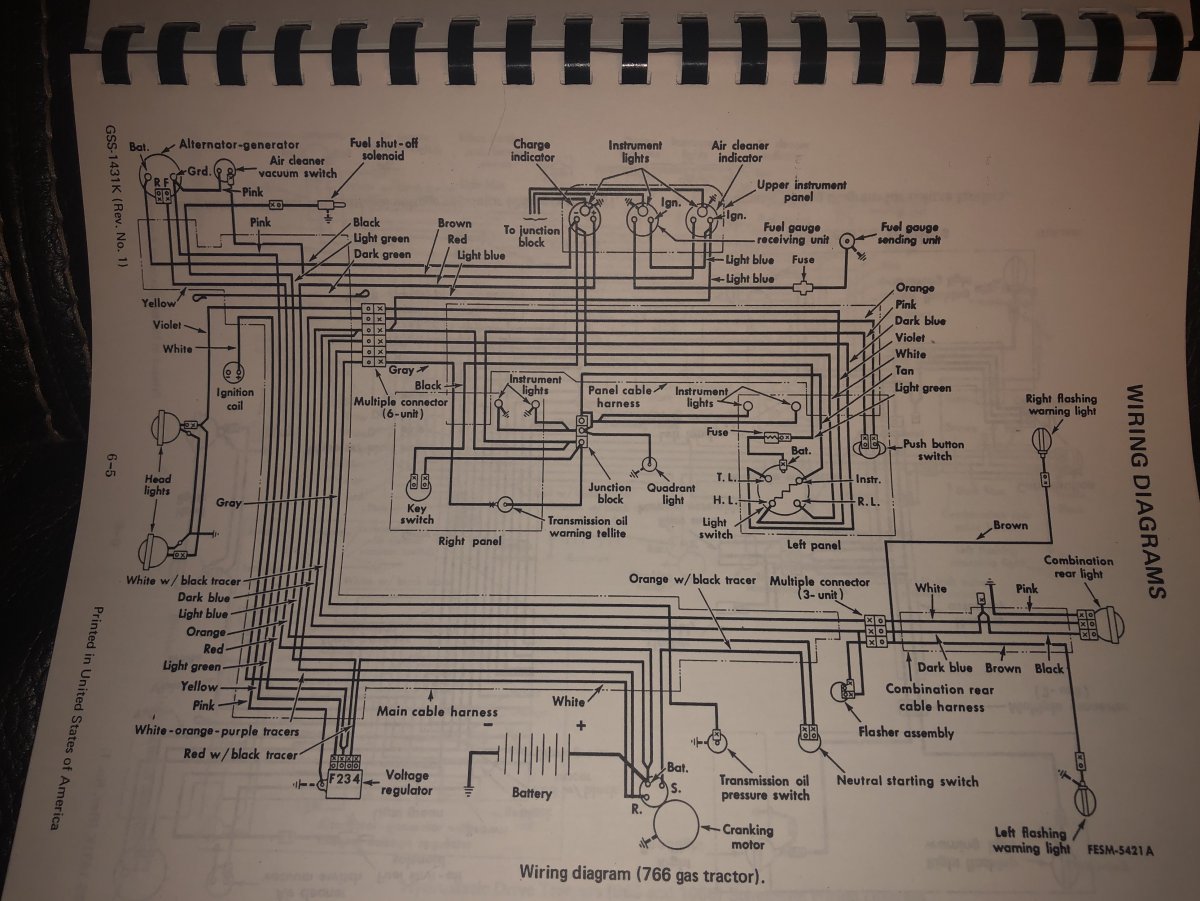 WIRING DIAGRAMS
GSS-1431K (Rev. No. 1)
6-5
Printed in United States of America
Bat.
Alternator-generator
R F
Grd.
Air cleaner
vacuum switch
Fuel shut-off
solenoid
Pink
Pink
Charge
indicator
Instrument
lights
Air cleaner
indicator
Upper instrument
panel
Ign.
Ign.
To junction
block
Fuel gauge
receiving unit
Fuel gauge
sending unit
Fuse
Black
Light green
Dark green
Brown
Red
Light blue
Light blue
Light blue
Yellow
Violet
White
Ignition
coil
Orange
Pink
Dark blue
Violet
White
Tan
Light green
Gray
Black
Multiple connector
(6-unit)
Instrument
lights
Panel cable
harness
Instrument
lights
Fuse
Bat.
Push button
switch
T. L.
Instr.
H. L.
R. L.
Light
switch
Left panel
Junction
block
Quadrant
light
Key
switch
Transmission oil
warning tellite
Right panel
Head
lights
Gray
Right flashing
warning light
Brown
White w/black tracer
Dark blue
Light blue
Orange
Red
Light green
Yellow
Pink
White-orange-purple tracers
Red w/black tracer
Orange w/black tracer
Multiple connector
(3-unit)
White
Pink
Combination
rear light
Dark blue
Brown
Black
Combination rear
cable harness
Flasher assembly
Main cable harness
White
F 2 3 4
Voltage
regulator
-
+
Battery
Bat.
S.
R.
Cranking
motor
Transmission oil
pressure switch
Neutral starting switch
Left flashing
warning light
FESM-5421A
Wiring diagram (766 gas tractor).